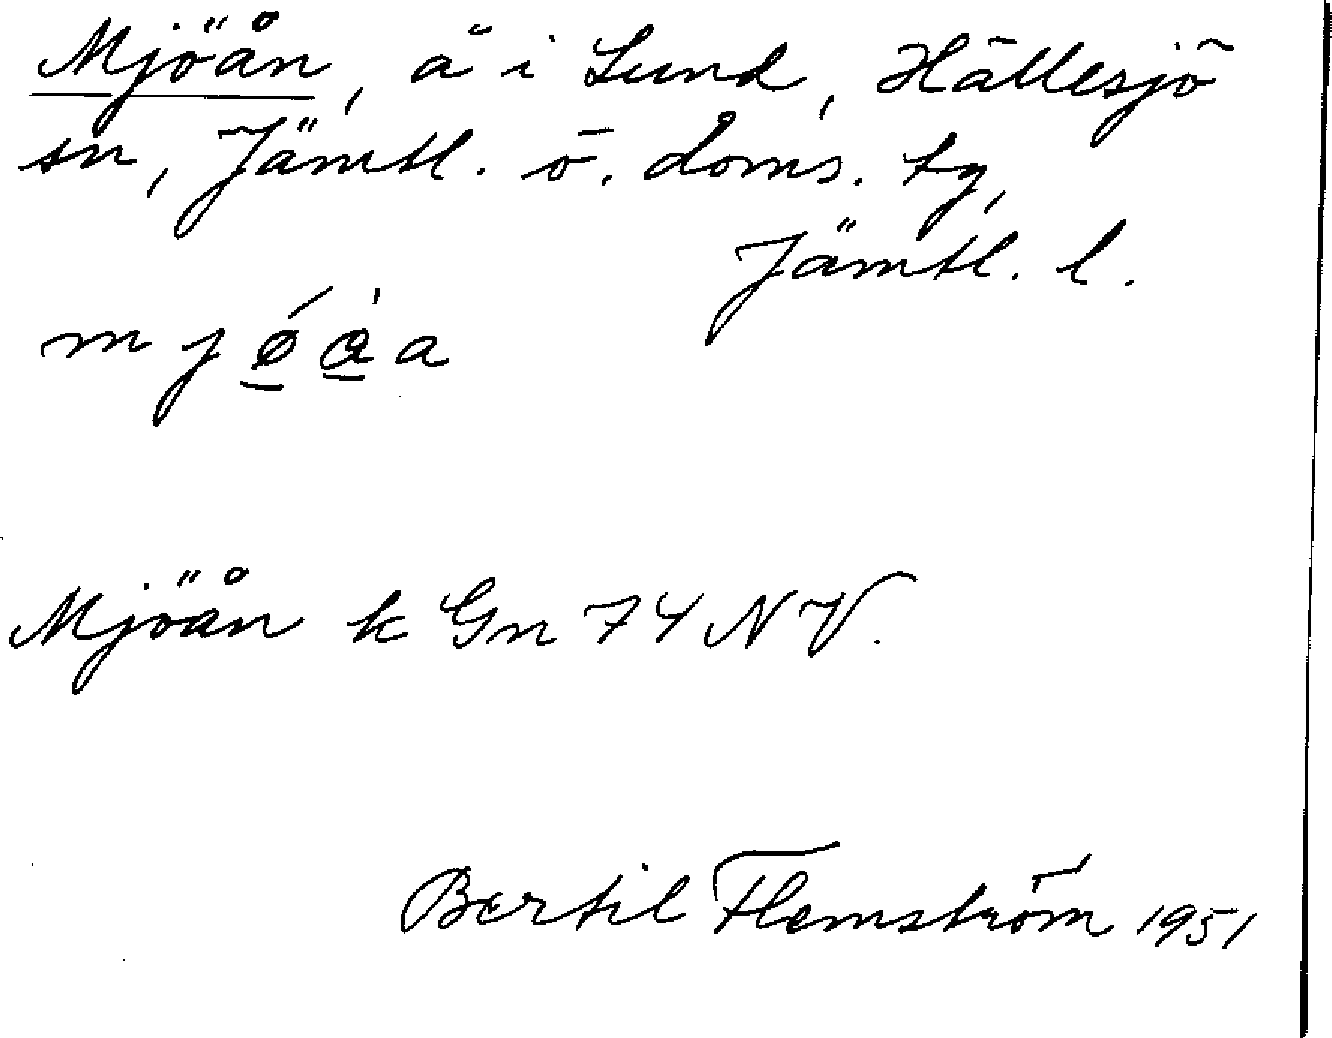 Mjöån, å i Lund, Hällesjö
sn, Jämtl. ö. doms. tg,
Jämtl. l.
m j ǿ å̀ a
Mjöån k Gn 74 NV.
Bertil Flemström 1951